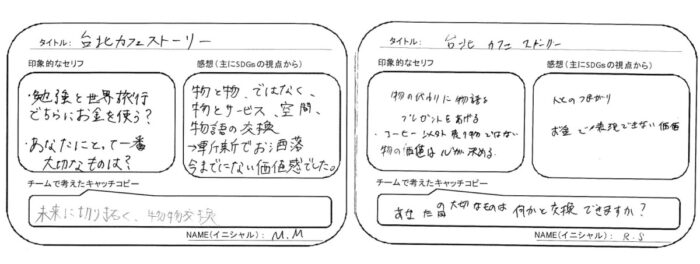 タイトル: 台北カフェストーリー
印象的なセリフ
・勉強と世界旅行
どちらにお金を使う?
・あなたにとって一番
大切なものは?
感想(主にSDGsの視点から)
物と物、ではなく、
物とサービス、空間、
物語の交換
→斬新でお洒落
今までにない価値感でした。
チームで考えたキャッチコピー
未来に切り拓く、物物交換
NAME(イニシャル): M.M
タイトル: 台北 カフェ ストーリー
印象的なセリフ
物の代わりに物語を
プレゼントをあげる
・コーヒー以外売り物ではない
物の価値は心が決める
感想(主にSDGsの視点から)
人とのつながり
お金で表現できない価値
チームで考えたキャッチコピー
あなたの大切なものは何かと交換できますか?
NAME(イニシャル): R.S